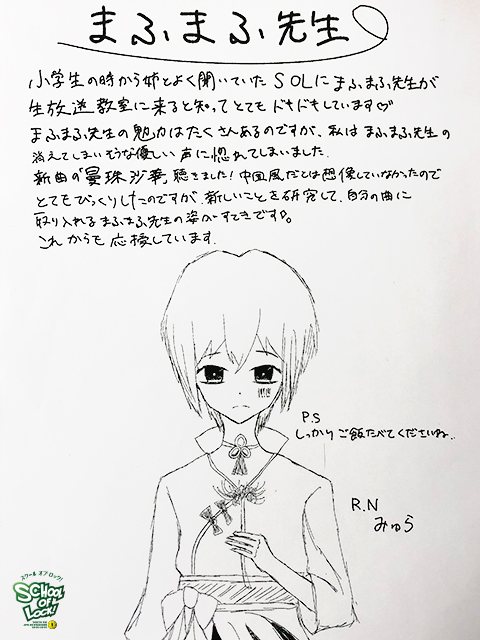 まふまふ先生
小学生の時から姉とよく聞いていたSOLにまふまふ先生が
生放送教室に来ると知ってとてもドキドキしています♡
まふまふ先生の魅力はたくさんあるのですが、私はまふまふ先生の
消えてしまいそうな優しい声に惚れてしまいました。
新曲の「曼珠沙華」聴きました！中国風だとは想像していなかったので
とてもびっくりしたのですが、新しいことを研究して、自分の曲に
取り入れるまふまふ先生の姿がすてきです。
これからも応援しています。
P.S
しっかりご飯たべてくださいね。
R.N
みゅら
スクール オブ ロック!
SCHOOL
OF
LOCK!